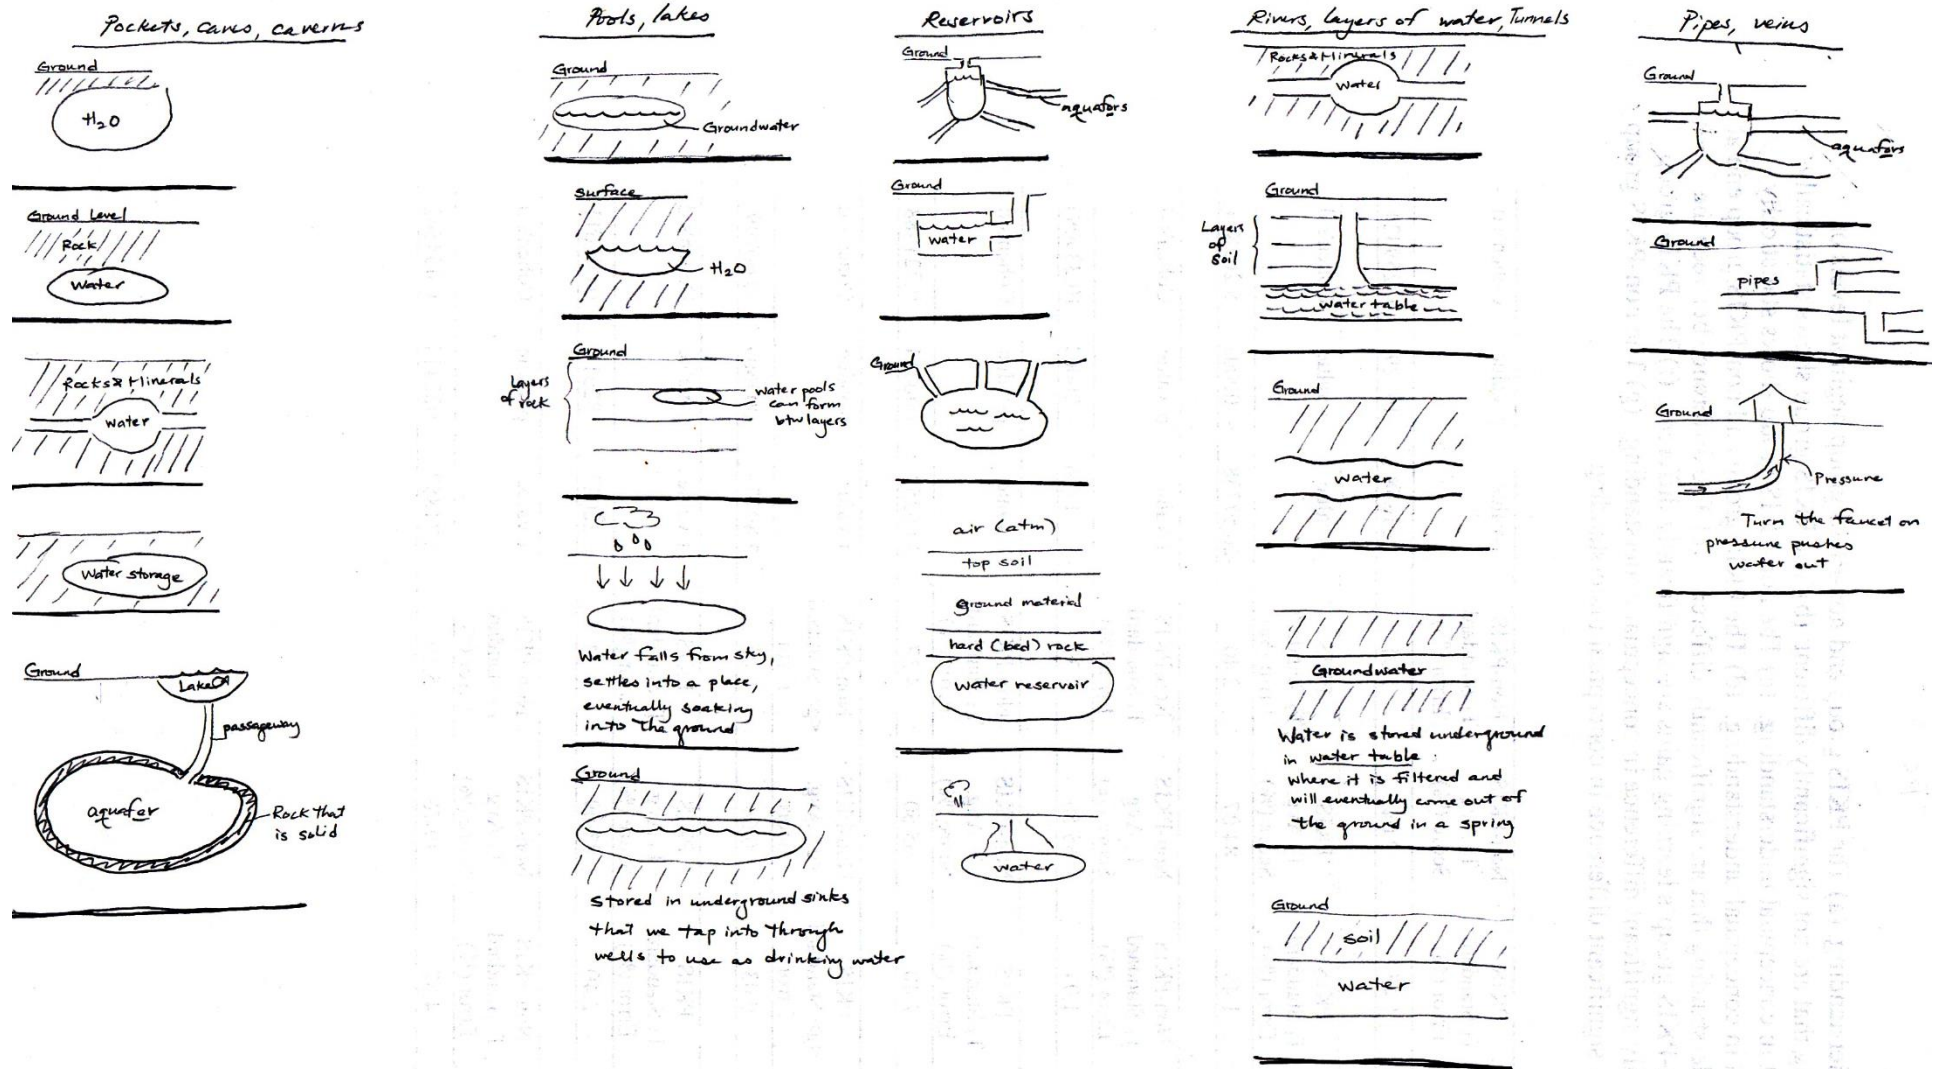 Pockets, caves, caverns
Ground
H₂O
Ground Level
Rock
Water
Rocks & Minerals
Water
Water storage
Ground
Lake
passageway
aquafer
Rock that
is solid
Pools, lakes
Ground
Groundwater
surface
H₂O
Ground
Layers
of rock
water pools
can form
btw layers
Water falls from sky,
settles into a place,
eventually soaking
into the ground
Ground
stored in underground sinks
that we tap into through
wells to use as drinking water
Reservoirs
Ground
aquafors
Ground
water
Ground
air (atm)
top soil
ground material
hard (bed) rock
water reservoir
water
Rivers, layers of water, Tunnels
Rocks & Minerals
Water
Ground
Layers
of
soil
water table
Ground
water
Groundwater
Water is stored underground
in water table
where it is filtered and
will eventually come out of
the ground in a spring
Ground
soil
water
Pipes, veins
Ground
aquafors
Ground
pipes
Ground
Pressure
Turn the faucet on
pressure pushes
water out